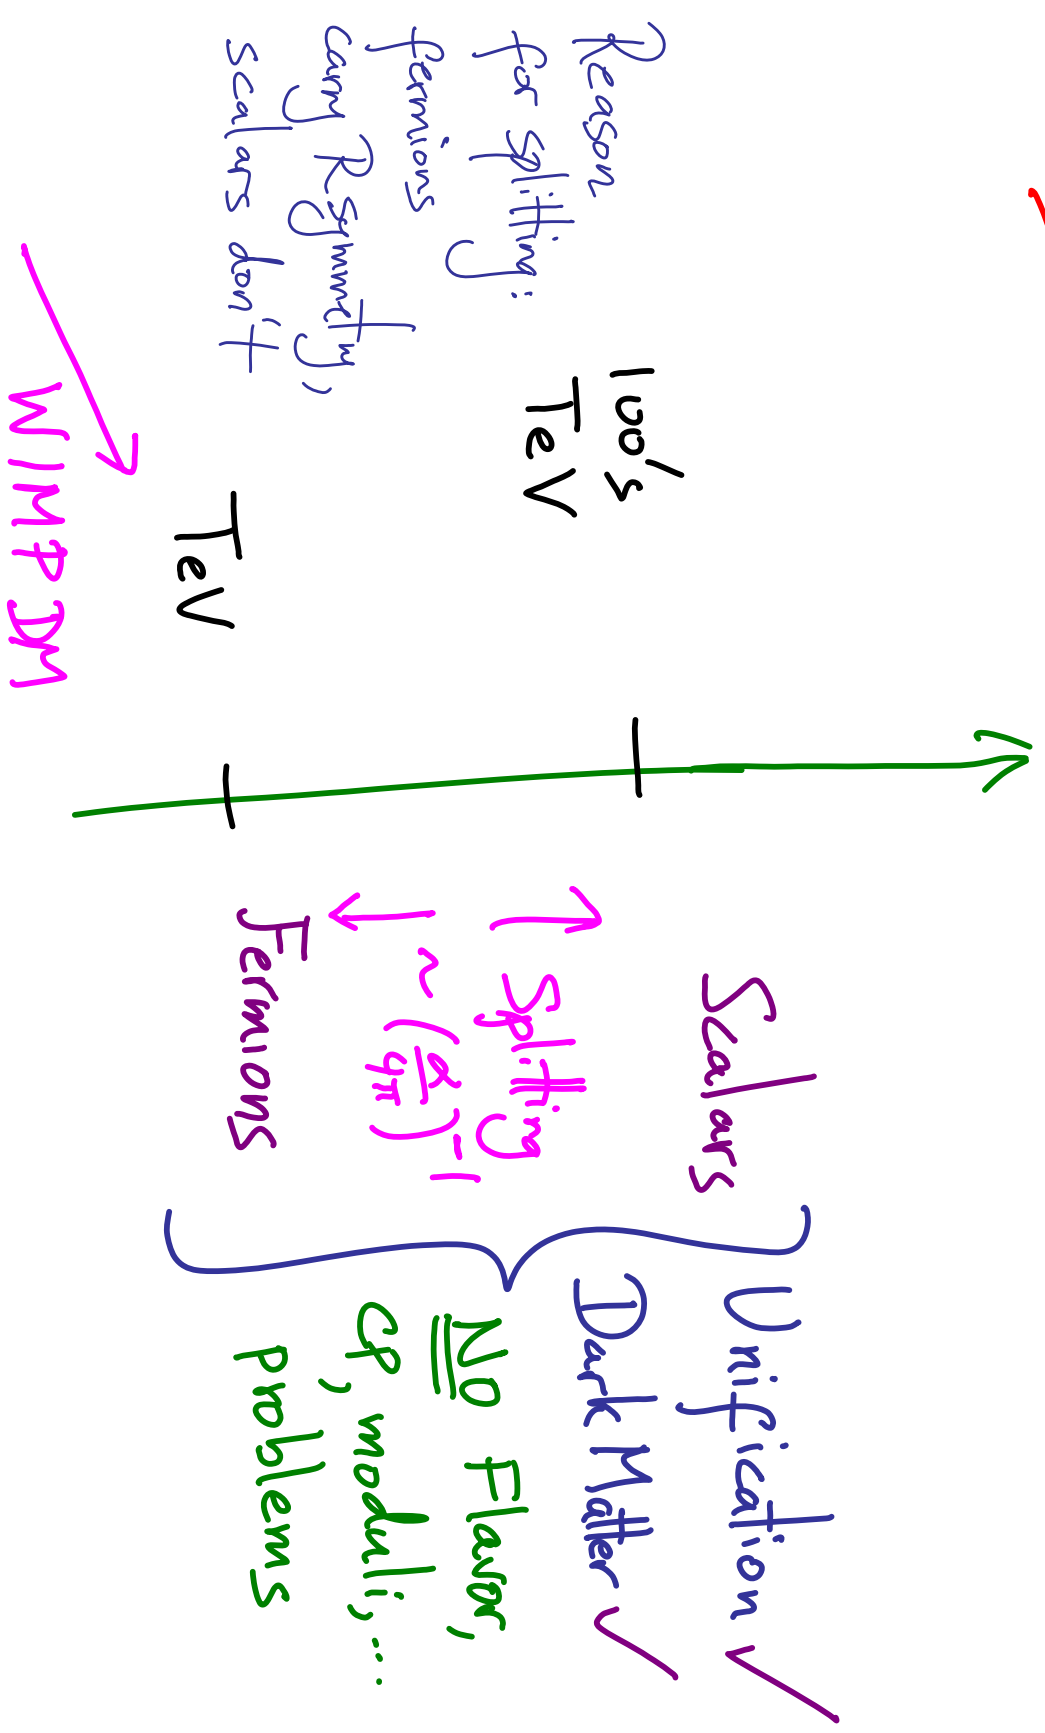 Reason
for splitting:
fermions
carry R symmetry,
scalars don't
100's
TeV
TeV
WIMP DM
Scalars
Splitting
~ (α/4π)^-1
Fermions
Unification ✓
Dark Matter ✓
No Flavor,
CP, moduli, ...
problems